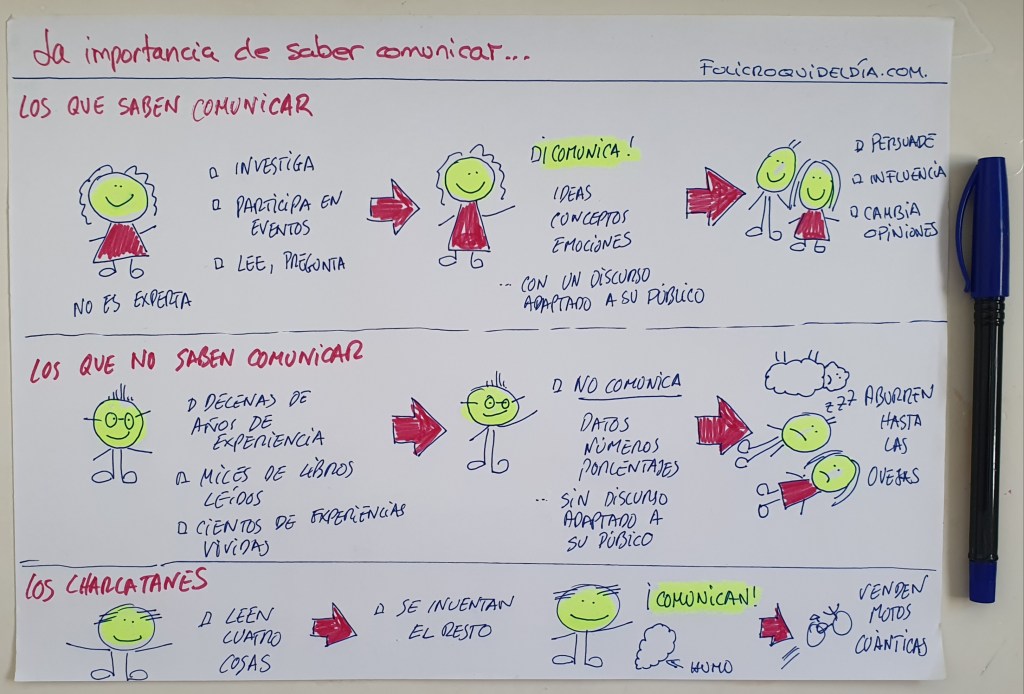 La importancia de saber comunicar...
FOLICROQUIDELDÍA.COM.
LOS QUE SABEN COMUNICAR
INVESTIGA
PARTICIPA EN
EVENTOS
LEE, PREGUNTA
NO ES EXPERTA
¡COMUNICA!
IDEAS
CONCEPTOS
EMOCIONES
... CON UN DISCURSO
ADAPTADO A SU PÚBLICO
PERSUADE
INFLUENCIA
CAMBIA
OPINIONES
LOS QUE NO SABEN COMUNICAR
DECENAS DE
AÑOS DE
EXPERIENCIA
MILES DE LIBROS
LEÍDOS
CIENTOS DE EXPERIENCIAS
VIVIDAS
NO COMUNICA
DATOS
NÚMEROS
PORCENTAJES
... SIN DISCURSO
ADAPTADO A
SU PÚBICO
zzz
ABURREN
HASTA
LAS
OVEJAS
LOS CHARLATANES
LEEN
CUATRO
COSAS
SE INVENTAN
EL RESTO
¡COMUNICAN!
HUMO
VENDEN
MOTOS
CUÁNTICAS